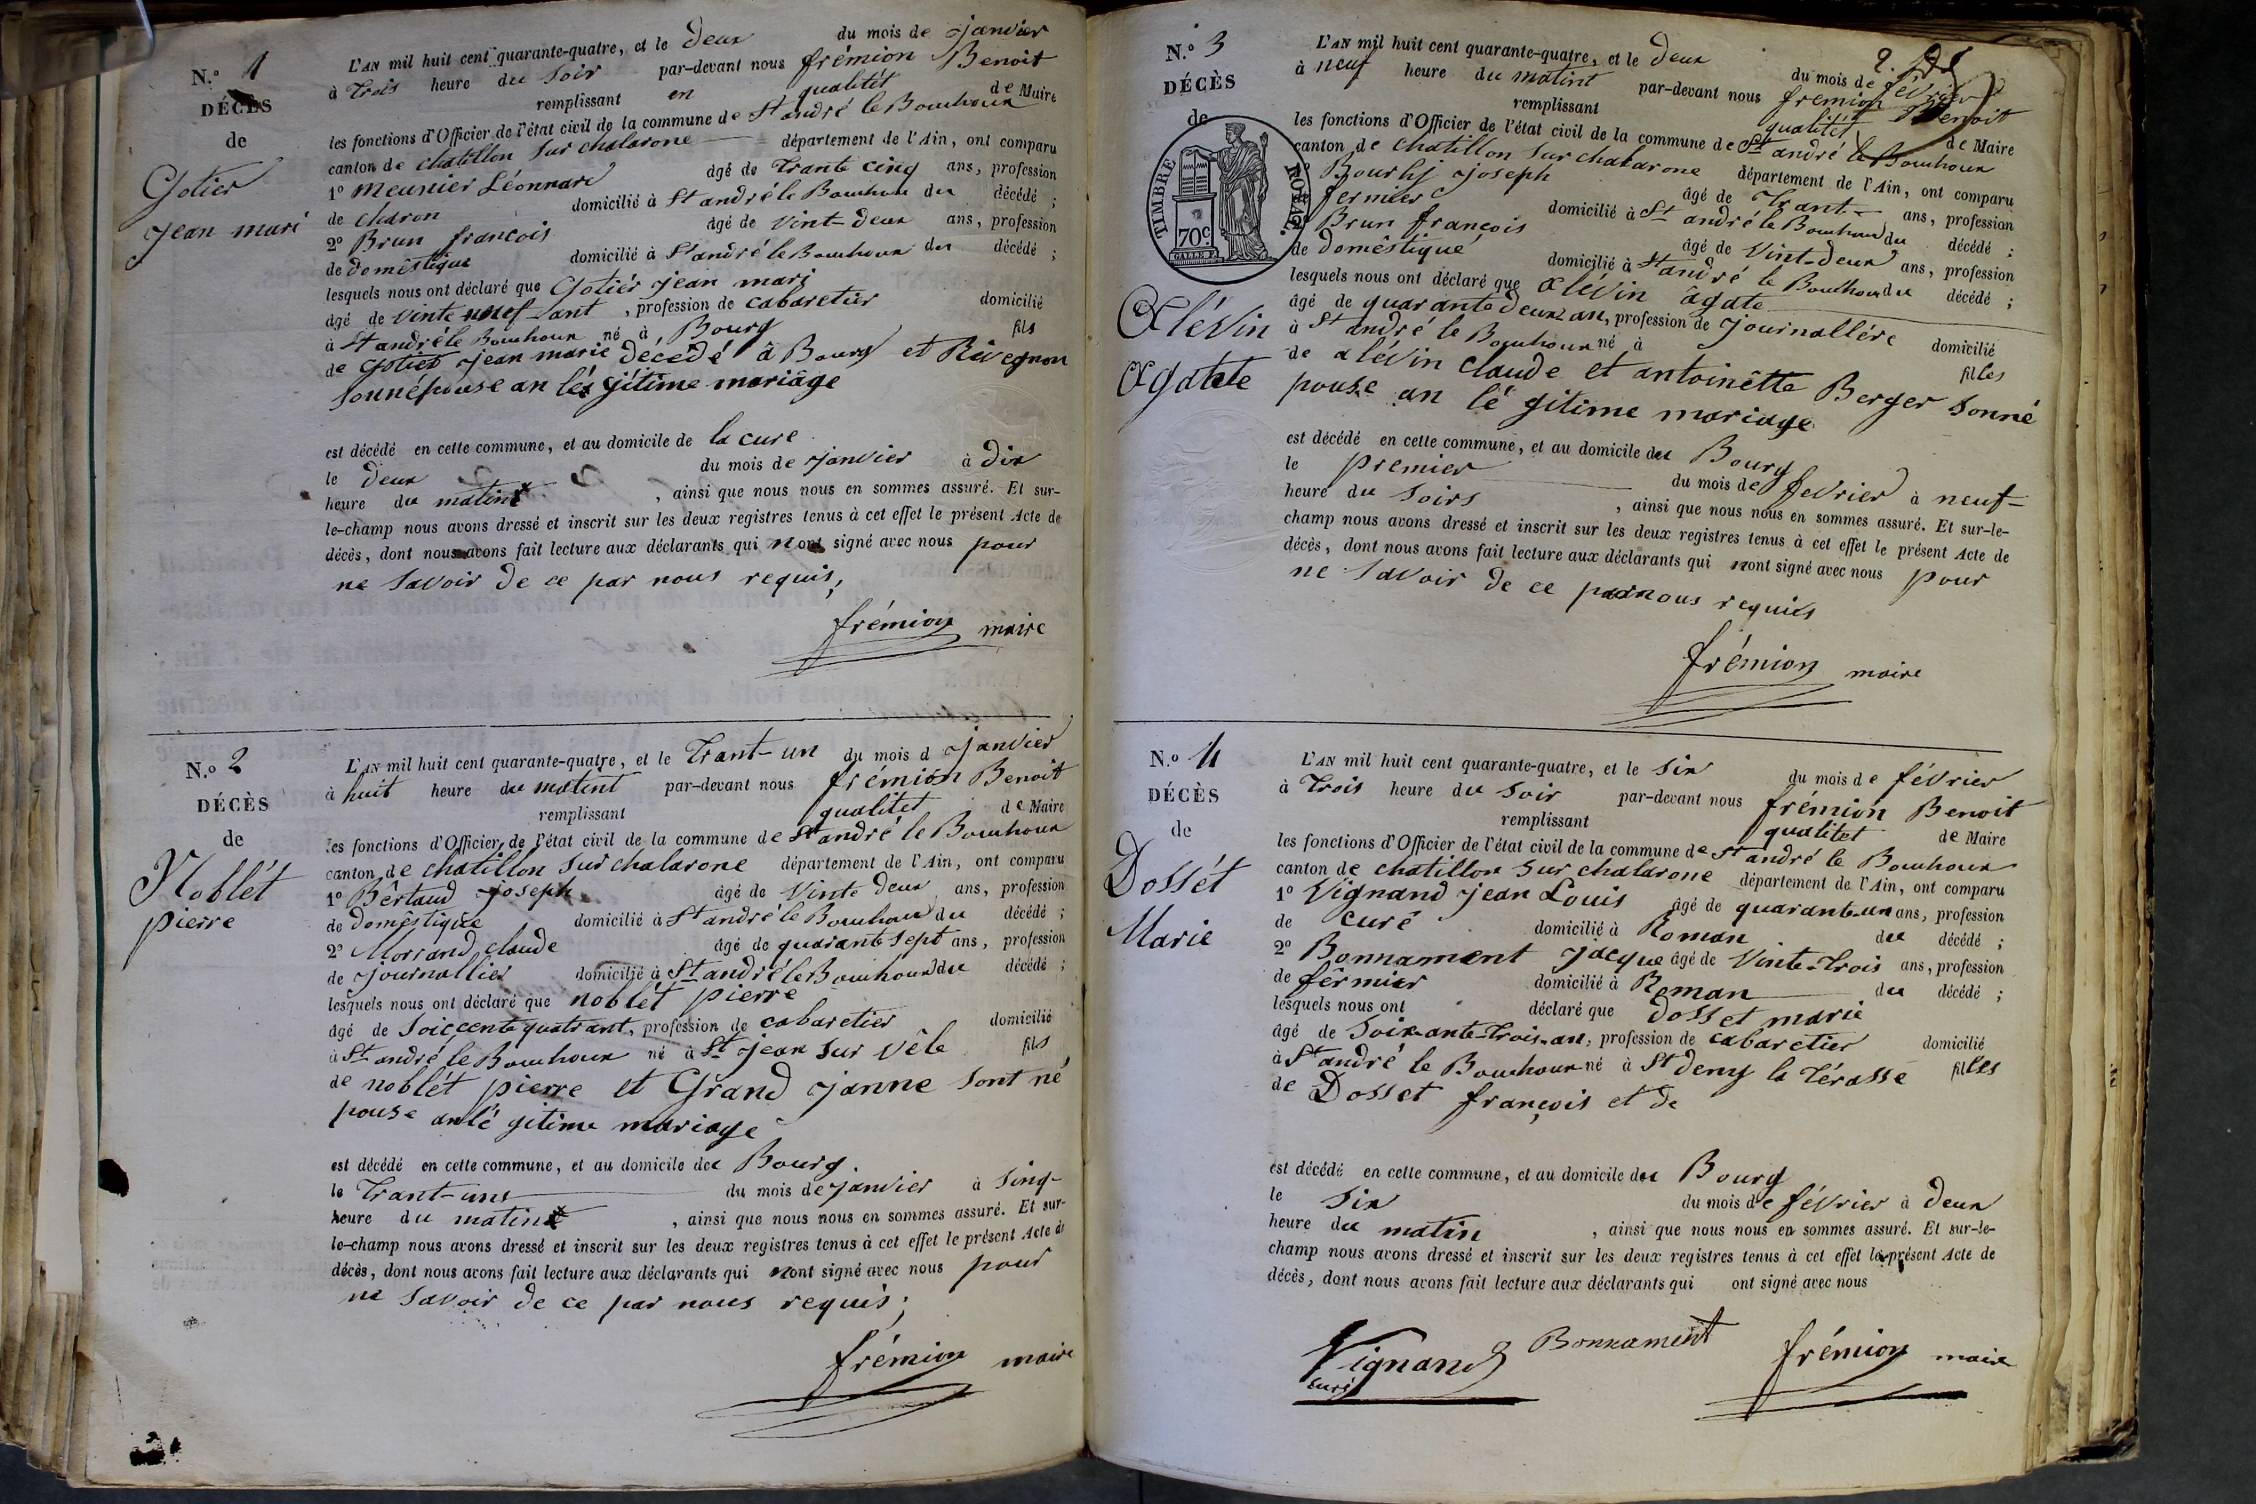 N.o 1
DÉCÈS
de
Gotier
jean mari
L'AN mil huit cent quarante-quatre, et le deux du mois de janvier
à trois heure du soir par-devant nous frémion Benoit
remplissant en qualitét de Maire
les fonctions d'Officier de l'état civil de la commune de St andré le Bouchoux
canton de chatillon sur chalarone département de l'Ain, ont comparu
1o meunier Léonnard âgé de trante cinq ans, profession
de charon domicilié à St andré le Bouchoux du décédé ;
2o Brun francois âgé de vint-deux ans, profession
de domêstique domicilié à St andré le Bouchoux du décédé ;
lesquels nous ont déclaré que Gotiér jean mari
âgé de vinte neuf ant, profession de cabaretier domicilié
à St andré le Bouchoux né à Bourg fils
de Gotier jean marie décédé â Bourg et Rivegnon
sonnépouse an légitime mariâge
est décédé en cette commune, et au domicile de la cure
le deux du mois de janvier à dix
heure du matint, ainsi que nous nous en sommes assuré. Et sur-
le-champ nous avons dressé et inscrit sur les deux registres tenus à cet effet le présent Acte de
décès, dont nous avons fait lecture aux déclarants qui n ont signé avec nous pour
ne savoir de ce par nous requis,
frémion maire
N.o 2
DÉCÈS
de
Noblét
pierre
L'AN mil huit cent quarante-quatre, et le trant-un du mois d janvier
à huit heure du matint par-devant nous frémion Benoit
remplissant qualitet de Maire
les fonctions d'Officier de l'état civil de la commune de St andré le Bouchoux
canton de chatillon sur chalarone département de l'Ain, ont comparu
1o Bêrtaud joseph âgé de vinte deux ans, profession
de domêstique domicilié à St andré le Bouchoux du décédé ;
2o Morrand claude âgé de quarante sept ans, profession
de journallier domicilié à St andré le Bouchoux du décédé ;
lesquels nous ont déclaré que noblét pierre
âgé de soiccente quatrant, profession de cabaretier domicilié
à St andré le Bouchoux né à St jean sur vêle fils
de noblét pierre et Grand janne sont né
pouse anlé gitime mariage
est décédé en cette commune, et au domicile du Bourg.
le trant-uns du mois de janvier à sinq-
heure du matint, ainsi que nous nous en sommes assuré. Et sur-
le-champ nous avons dressé et inscrit sur les deux registres tenus à cet effet le présent Acte de
décès, dont nous avons fait lecture aux déclarants qui nont signé avec nous pour
ne savoir de ce par nous requis ;
frémion maire
2.
N.o 3
DÉCÈS
de
TIMBRE ROYAL.
70c.
Alévin
Agatte
L'AN mil huit cent quarante-quatre, et le deux du mois de février
à neuf heure du matint par-devant nous fremion Benoit
remplissant qualitét de Maire
les fonctions d'Officier de l'état civil de la commune de St andré le Bouchoux
canton de chatillon sur chalarone département de l'Ain, ont comparu
Bourhj joseph âgé de trant- ans, profession
fermier domicilié à St andré le Bouchoux du décédé ;
Brun françois âgé de vint-deux ans, profession
de domêstique domicilié à St andré le Bouchoux du décédé ;
lesquels nous ont déclaré que alevin âgate
âgé de quarante deux an, profession de journallére domicilié
à St andré le Bouchoux né à filles
de alévin claude et antoinêtte Berger sonné
pouse an lé gitime mariage
est décédé en cette commune, et au domicile du Bourg
le premier du mois de fevrier à neuf-
heure du soirs, ainsi que nous nous en sommes assuré. Et sur-le-
champ nous avons dressé et inscrit sur les deux registres tenus à cet effet le présent Acte de
décès, dont nous avons fait lecture aux déclarants qui nont signé avec nous pour
ne savoir de ce par nous requis
frémion maire
N.o 4
DÉCÈS
de
Dossét
Marie
L'AN mil huit cent quarante-quatre, et le six du mois de février
à trois heure du soir par-devant nous frémion Benoit
remplissant qualitet de Maire
les fonctions d'Officier de l'état civil de la commune de St andré le Bouchoux
canton de chatillon sur chalarone département de l'Ain, ont comparu
1o Vignand jean Louis âgé de quarante-un ans, profession
de curé domicilié à Roman du décédé ;
2o Bonnament jacque âgé de vinte-trois ans, profession
de fêrmier domicilié à Roman du décédé ;
lesquels nous ont déclaré que dosset marie
âgé de soixante-trois-an, profession de cabaretier domicilié
à St andré le Bouchoux né à St deny la térasse filles
de Dosset françois et de
est décédé en cette commune, et au domicile du Bourg
le six du mois de février à deux
heure du matin, ainsi que nous nous en sommes assuré. Et sur-le-
champ nous avons dressé et inscrit sur les deux registres tenus à cet effet le présent Acte de
décès, dont nous avons fait lecture aux déclarants qui ont signé avec nous
Vignand Bonnament frémion maire
curé